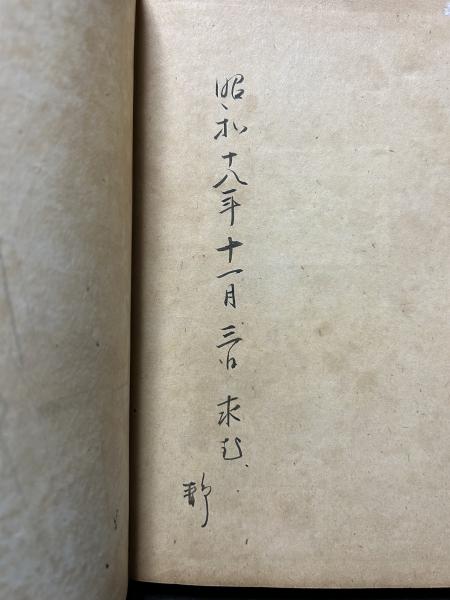 昭和十八年十一月三日求む
静